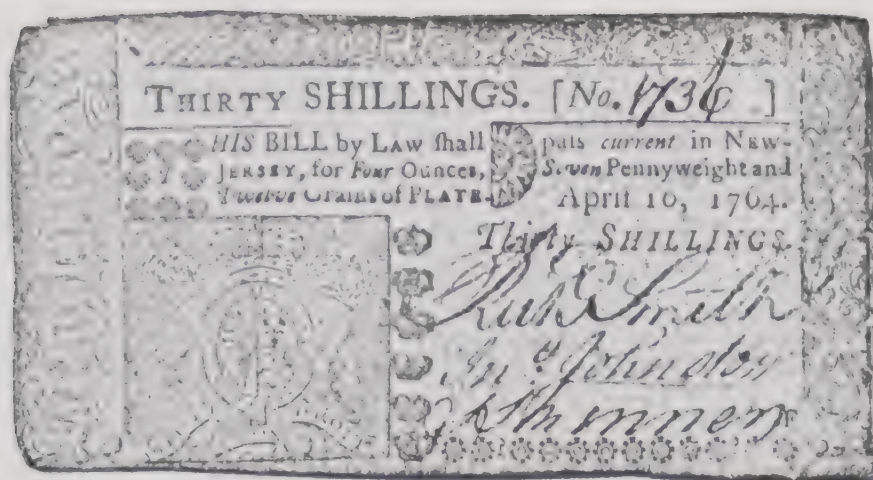 THIRTY SHILLINGS. [No. 1736 ]
THIS BILL by LAW ſhall paſs current in NEW-
JERSEY, for Four Ounces, Seven Pennyweight and
Twelve Grains of PLATE. April 10, 1764.
Thirty SHILLINGS.
Richd Smith
Jno Johnston